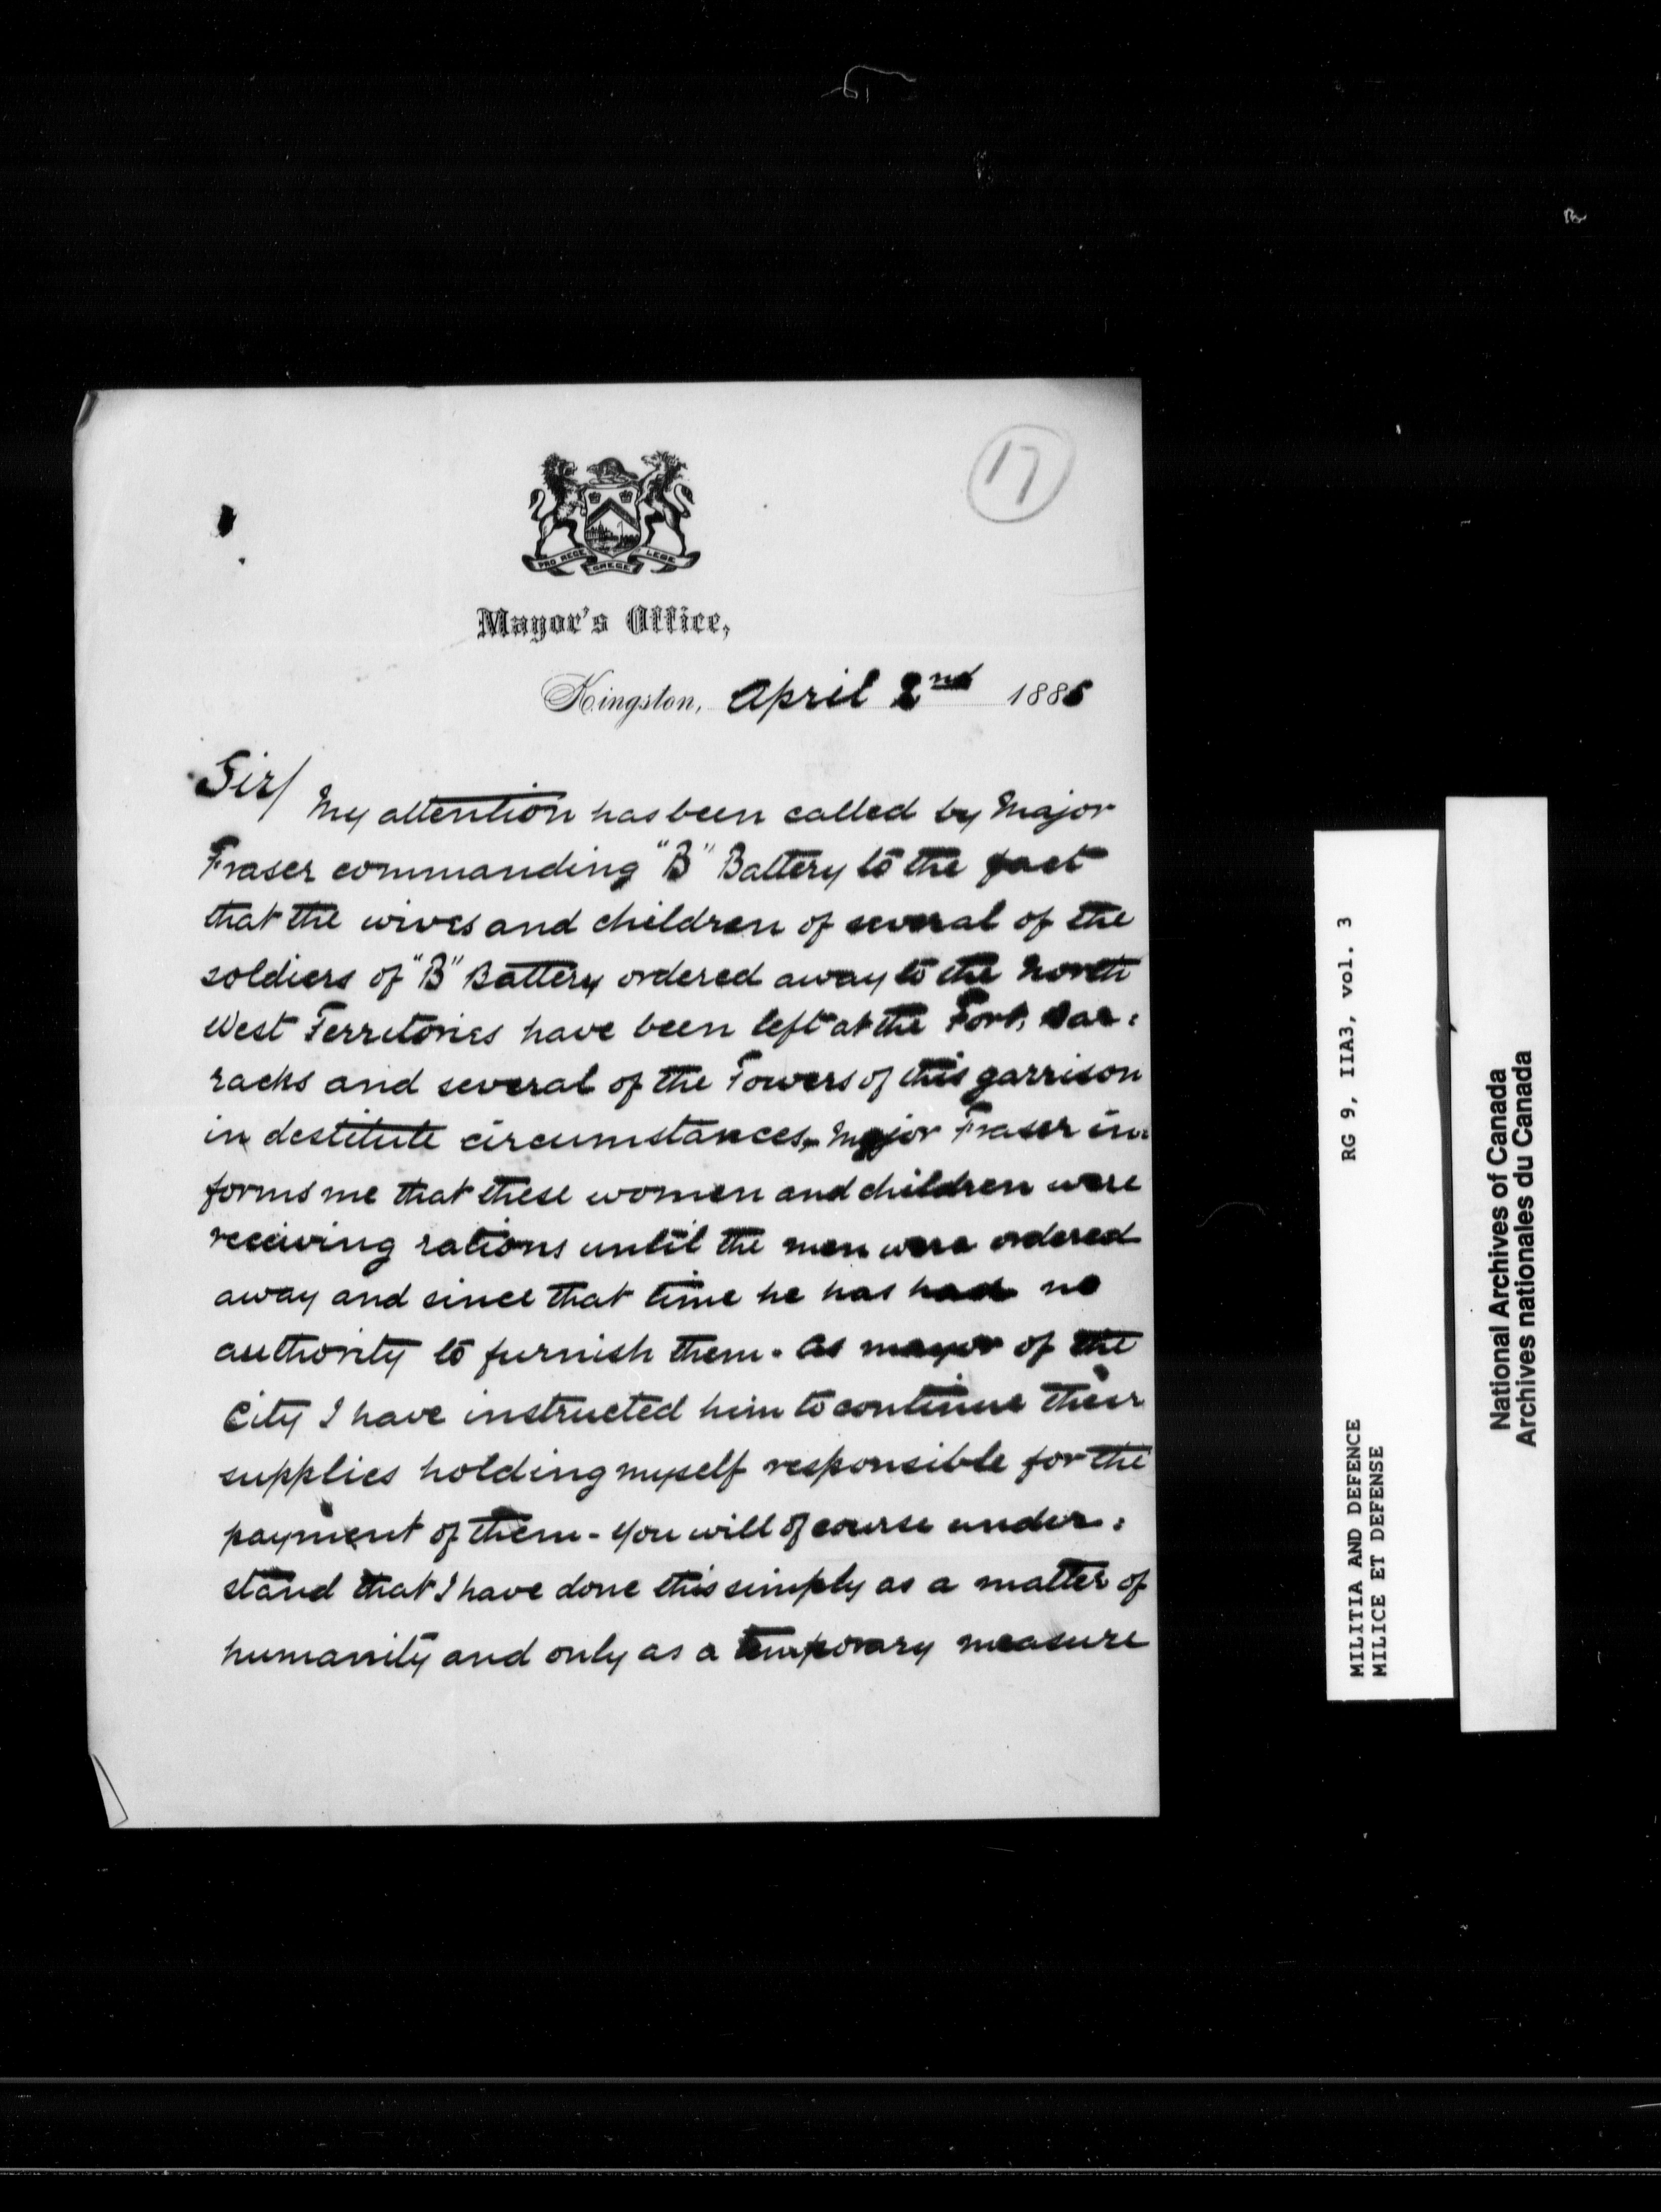 17
PRO REGE LEGE GREGE
Mayor's Office,
Kingston, April 2nd 1885
Sir/
My attention has been called by Major
Fraser commanding "B" Battery to the fact
that the wives and children of several of the
soldiers of "B" Battery ordered away to the North
West Territories have been left at the Fort, Bar:
racks and several of the Towers of this garrison
in destitute circumstances. Major Fraser in:
forms me that these women and children were
receiving rations until the men were ordered
away and since that time he has had no
authority to furnish them. As mayor of the
City I have instructed him to continue their
supplies holding myself responsible for the
payment of them - you will of course under:
stand that I have done this simply as a matter of
humanity and only as a temporary measure
MILITIA AND DEFENCE RG 9, IIA3, vol. 3
MILICE ET DEFENSE
National Archives of Canada
Archives nationales du Canada